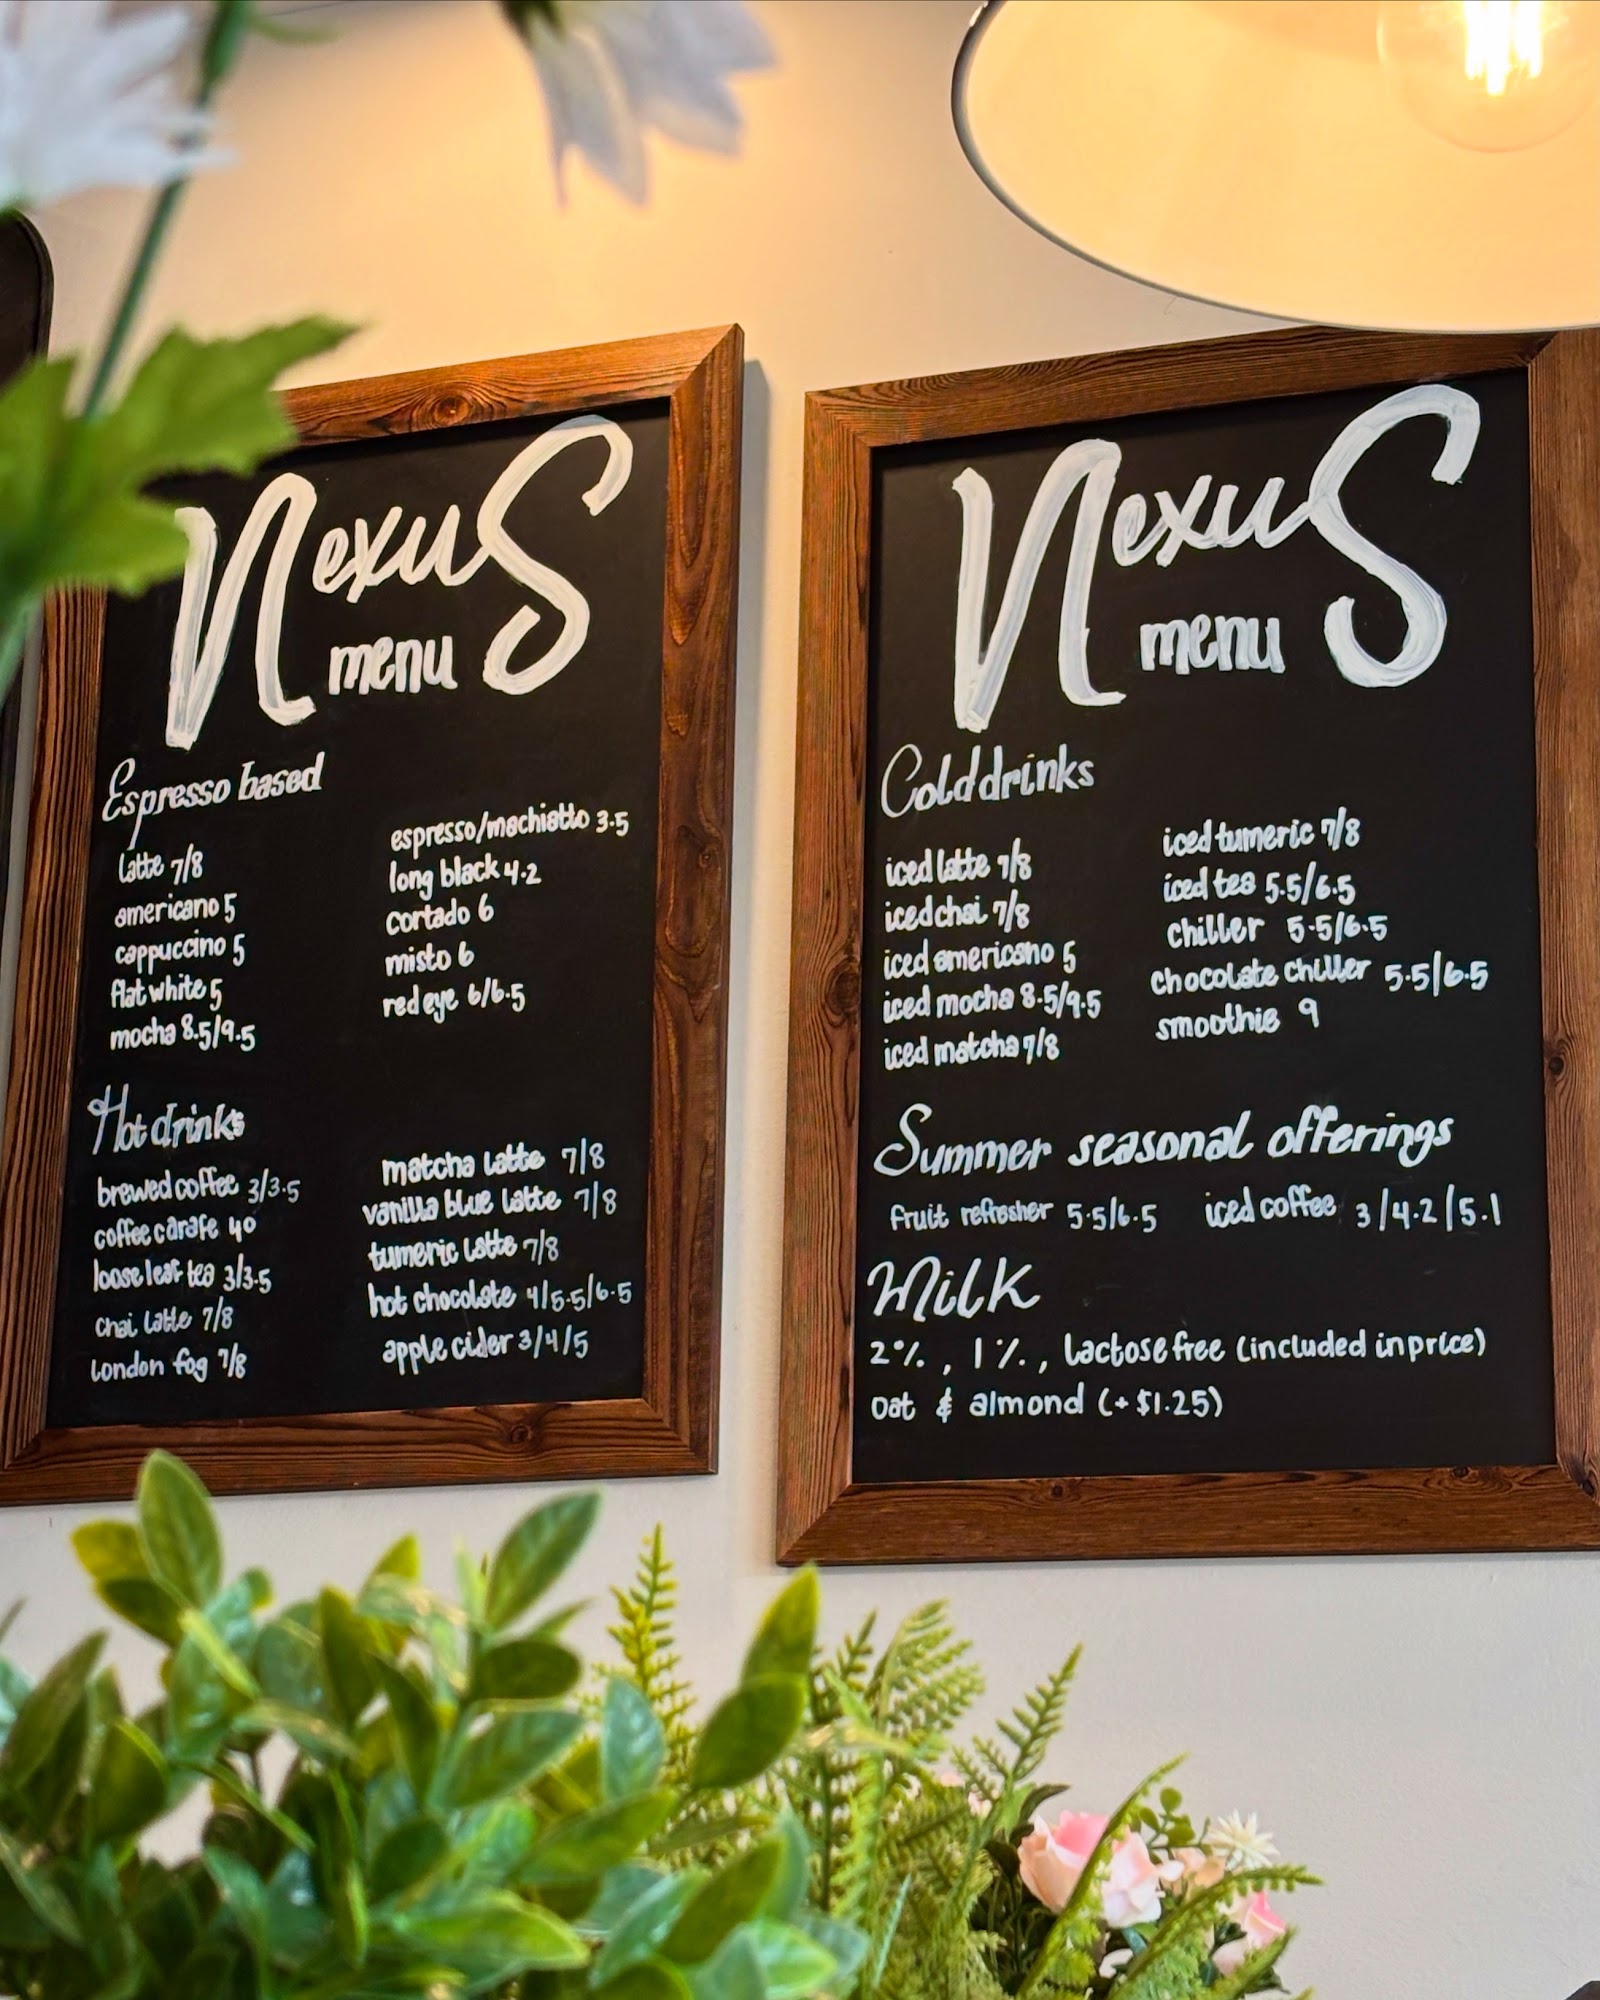 NexuS
menu
Espresso based
latte 7/8
americano 5
cappuccino 5
flat white 5
mocha 8.5/9.5
espresso/machiatto 3.5
long black 4.2
cortado 6
misto 6
red eye 6/6.5
Hot drinks
brewed coffee 3/3.5
coffee carafe 40
loose leaf tea 3/3.5
chai latte 7/8
london fog 7/8
matcha latte 7/8
vanilla blue latte 7/8
tumeric latte 7/8
hot chocolate 4/5.5/6.5
apple cider 3/4/5
NexuS
menu
Cold drinks
iced latte 7/8
iced chai 7/8
iced americano 5
iced mocha 8.5/9.5
iced matcha 7/8
iced tumeric 7/8
iced tea 5.5/6.5
chiller 5.5/6.5
chocolate chiller 5.5/6.5
smoothie 9
Summer seasonal offerings
fruit refresher 5.5/6.5 iced coffee 3/4.2/5.1
Milk
2%, 1%, lactose free (included in price)
oat & almond (+$1.25)